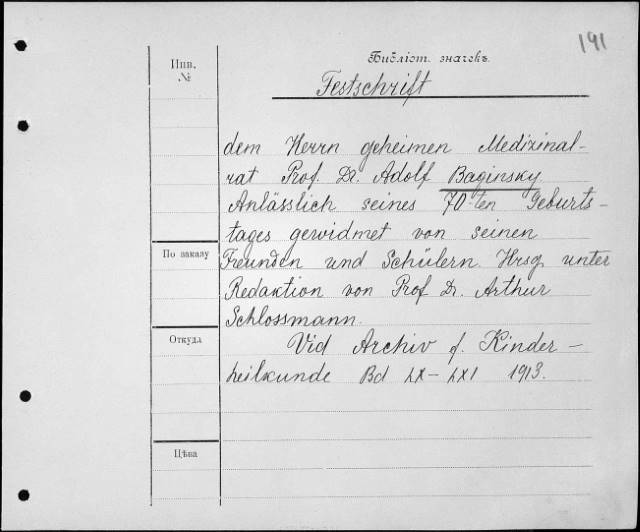 191
Инв.
№
Библіот. значекъ
Festschrift
dem Herrn geheimen Medizinal-
rat Prof. Dr. Adolf Baginsky
Anlässlich seines 70-ten Geburts-
tages gewidmet von seinen
По заказу
Freunden und Schülern. Hrsg. unter
Redaktion von Prof. Dr. Arthur
Schlossmann.
Откуда
Vid Archiv f. Kinder-
heilkunde Bd LX-LXI 1913.
Цѣна